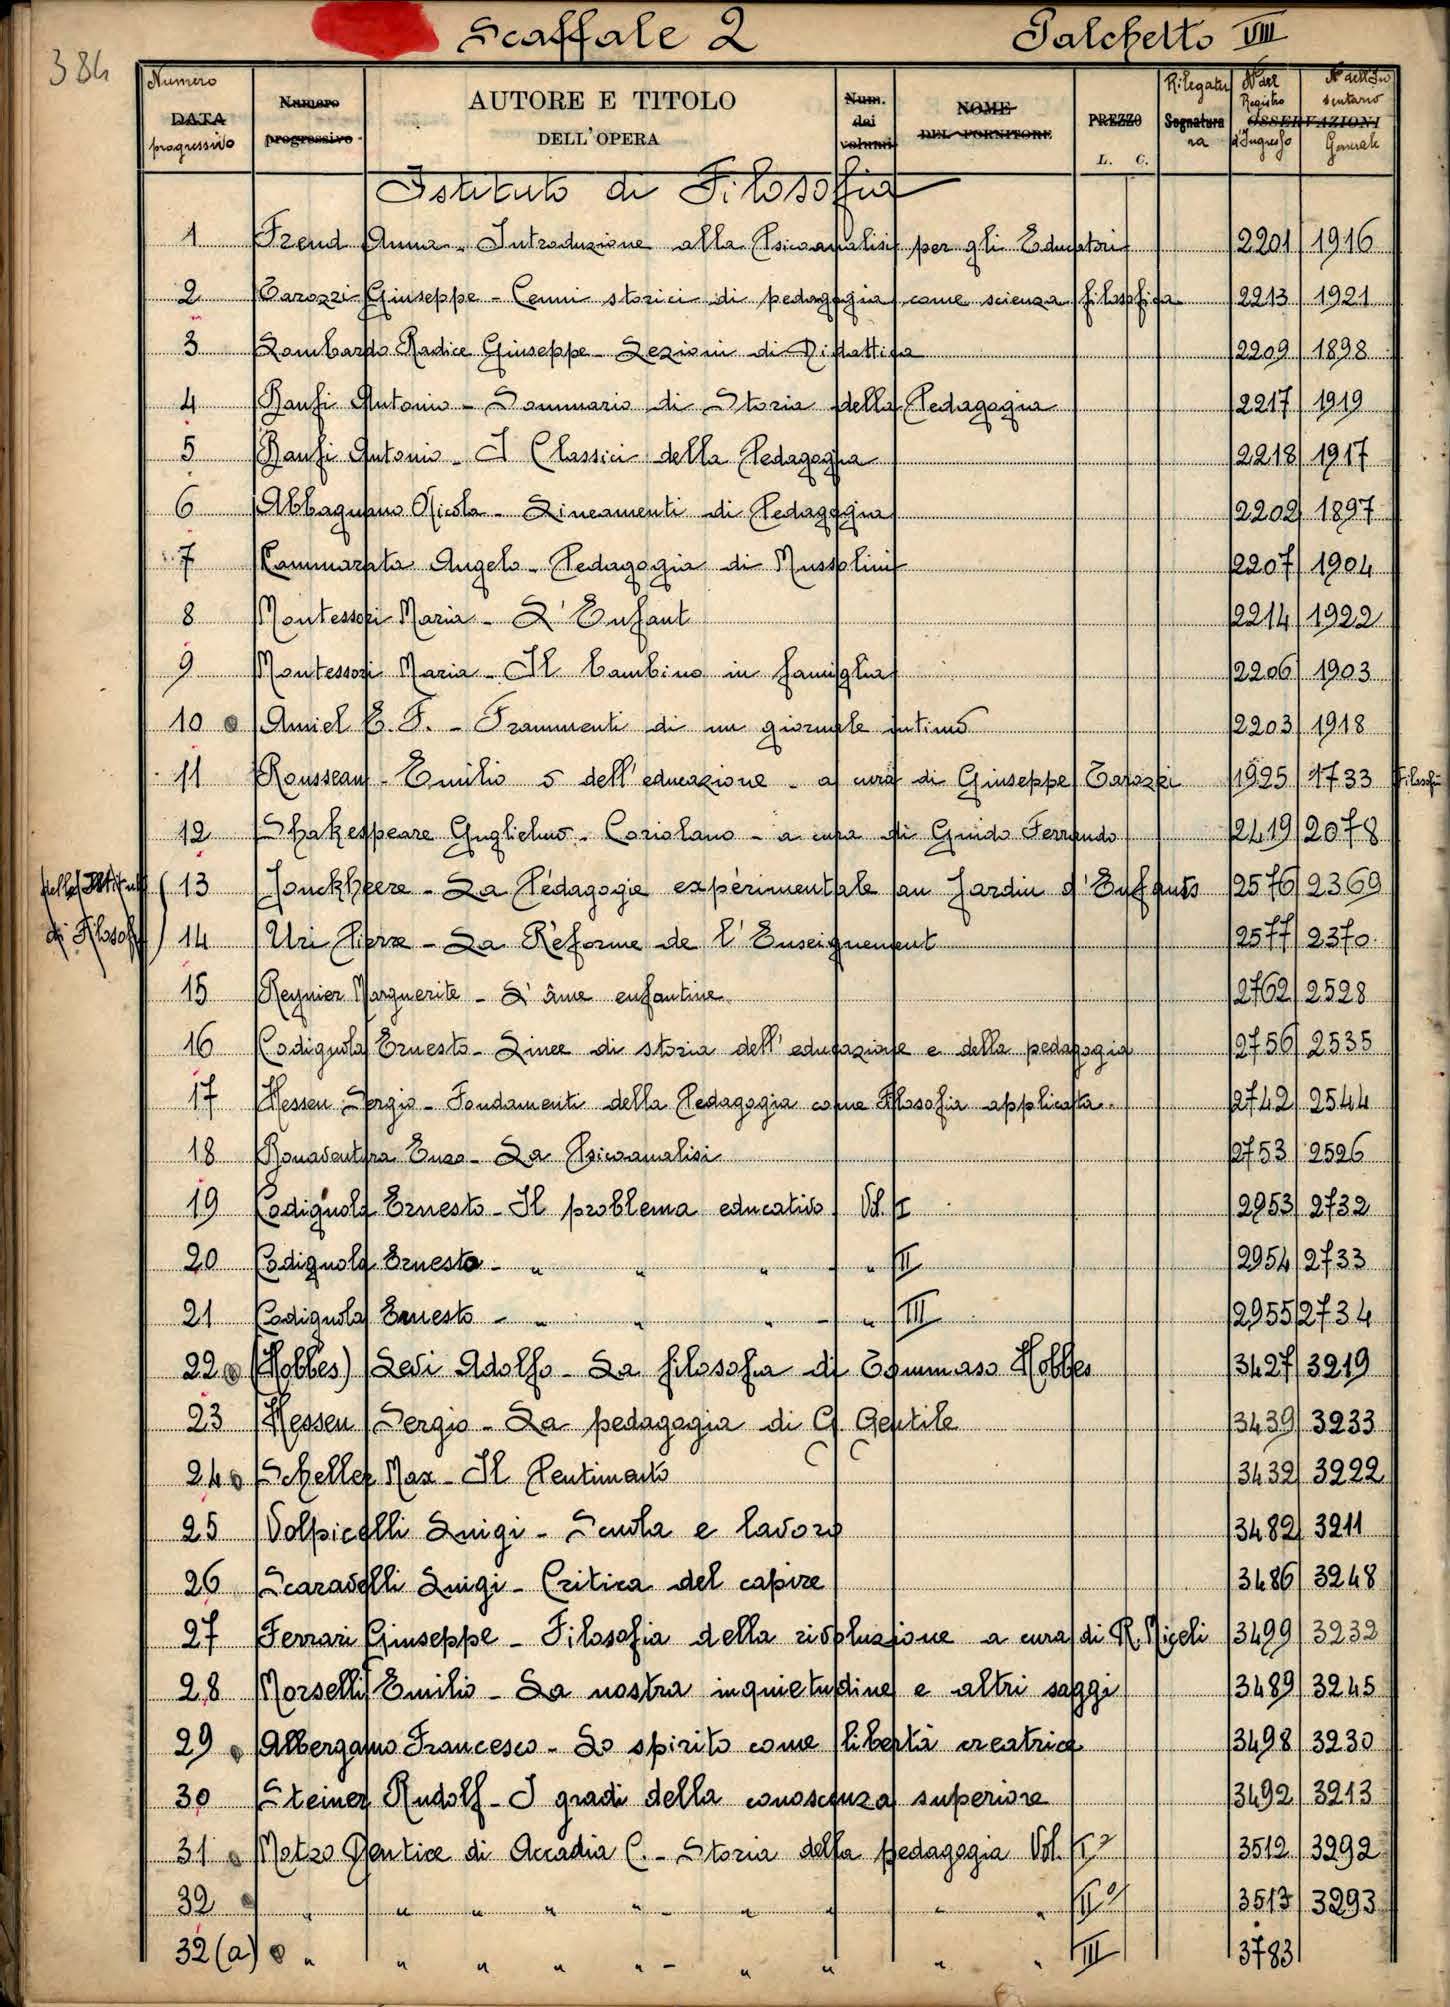 Scaffale 2 Palchetto VIII
384
Numero Numero AUTORE E TITOLO Num. NOME PREZZO Rilegatu N° del N° dell'In
DATA progressivo DELL'OPERA dei DEL FORNITORE L. C. Segnatura Registro ventario
progressivo volumi ra d'Ingresso OSSERVAZIONI Generale
Istituto di Filosofia
1 Freud Anna - Introduzione alla Psicoanalisi per gli Educatori 2201 1916
2 Tarozzi Giuseppe - Cenni storici di pedagogia come scienza filosofica 2213 1921
3 Lombardo Radice Giuseppe - Lezioni di Didattica 2209 1898
4 Banfi Antonio - Sommario di Storia della Pedagogia 2217 1919
5 Banfi Antonio - I Classici della Pedagogia 2218 1917
6 Abbagnano Nicola - Lineamenti di Pedagogia 2202 1897
7 Cammarata Angelo - Pedagogia di Mussolini 2207 1904
8 Montessori Maria - L'Enfant 2214 1922
9 Montessori Maria - Il bambino in famiglia 2206 1903
10 Amiel E. F. - Frammenti di un giornale intimo 2203 1918
11 Rousseau - Emilio o dell'educazione - a cura di Giuseppe Tarozzi 1925 1733 Filosofia
12 Shakespeare Guglielmo - Coriolano - a cura di Guido Ferrando 2419 2078
13 Jonckheere - La Pédagogie expèrimentale au Jardin d'Enfants 2576 2369
di Filosof 14 Uri Pierre - La Rèforme de l'Enseignement 2577 2370
15 Reynier Marguerite - L'âme enfantine 2762 2528
16 Codignola Ernesto - Linee di storia dell'educazione e della pedagogia 2756 2535
17 Hessen Sergio - Fondamenti della Pedagogia come Filosofia applicata. 2742 2544
18 Bonaventura Enzo - La Psicoanalisi 2753 2526
19 Codignola Ernesto - Il problema educativo Vol. I 2953 2732
20 Codignola Ernesto - " " " - " II 2954 2733
21 Codignola Ernesto - " " " - " III 2955 2734
22 (Hobbes) Levi Adolfo - La filosofia di Tommaso Hobbes 3427 3219
23 Hessen Sergio - La pedagogia di G. Gentile 3439 3233
24 Scheller Max - Il Pentimento 3432 3222
25 Volpicelli Luigi - Scuola e lavoro 3482 3211
26 Scaravelli Luigi - Critica del capire 3486 3248
27 Ferrari Giuseppe - Filosofia della rivoluzione a cura di R. Miceli 3499 3232
28 Morselli Emilio - La nostra inquietudine e altri saggi 3489 3245
29 Albergamo Francesco - Lo spirito come libertà creatrice 3498 3230
30 Steiner Rudolf - I gradi della conoscenza superiore 3492 3213
31 Motzo Dentice di Accadia C. - Storia della pedagogia Vol. I° 3512 3292
32 " " " " " - " " " " II° 3513 3293
32(a) " " " " " - " " " " III 3783